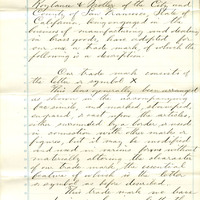 Weyland & Shelley of the City and
County of San Francisco, State of
California, being engaged in the
business of manufacturing and dealing
in brass goods, have adopted for
our use a trade mark, of which the
following is a description.
Our trade mark consists of
the letter or symbol X
This has generally been arranged
as shown in the accompanying
fac simile, and marked, stamped
on, and cast upon the articles,
often surrounded by a border, or used
in connection with other marks or
figures, but it may be modified
and used in various forms without
materially altering the character
of our trade mark, the essential
feature of which is the letter
or symbol as before described.
This trade mark we have